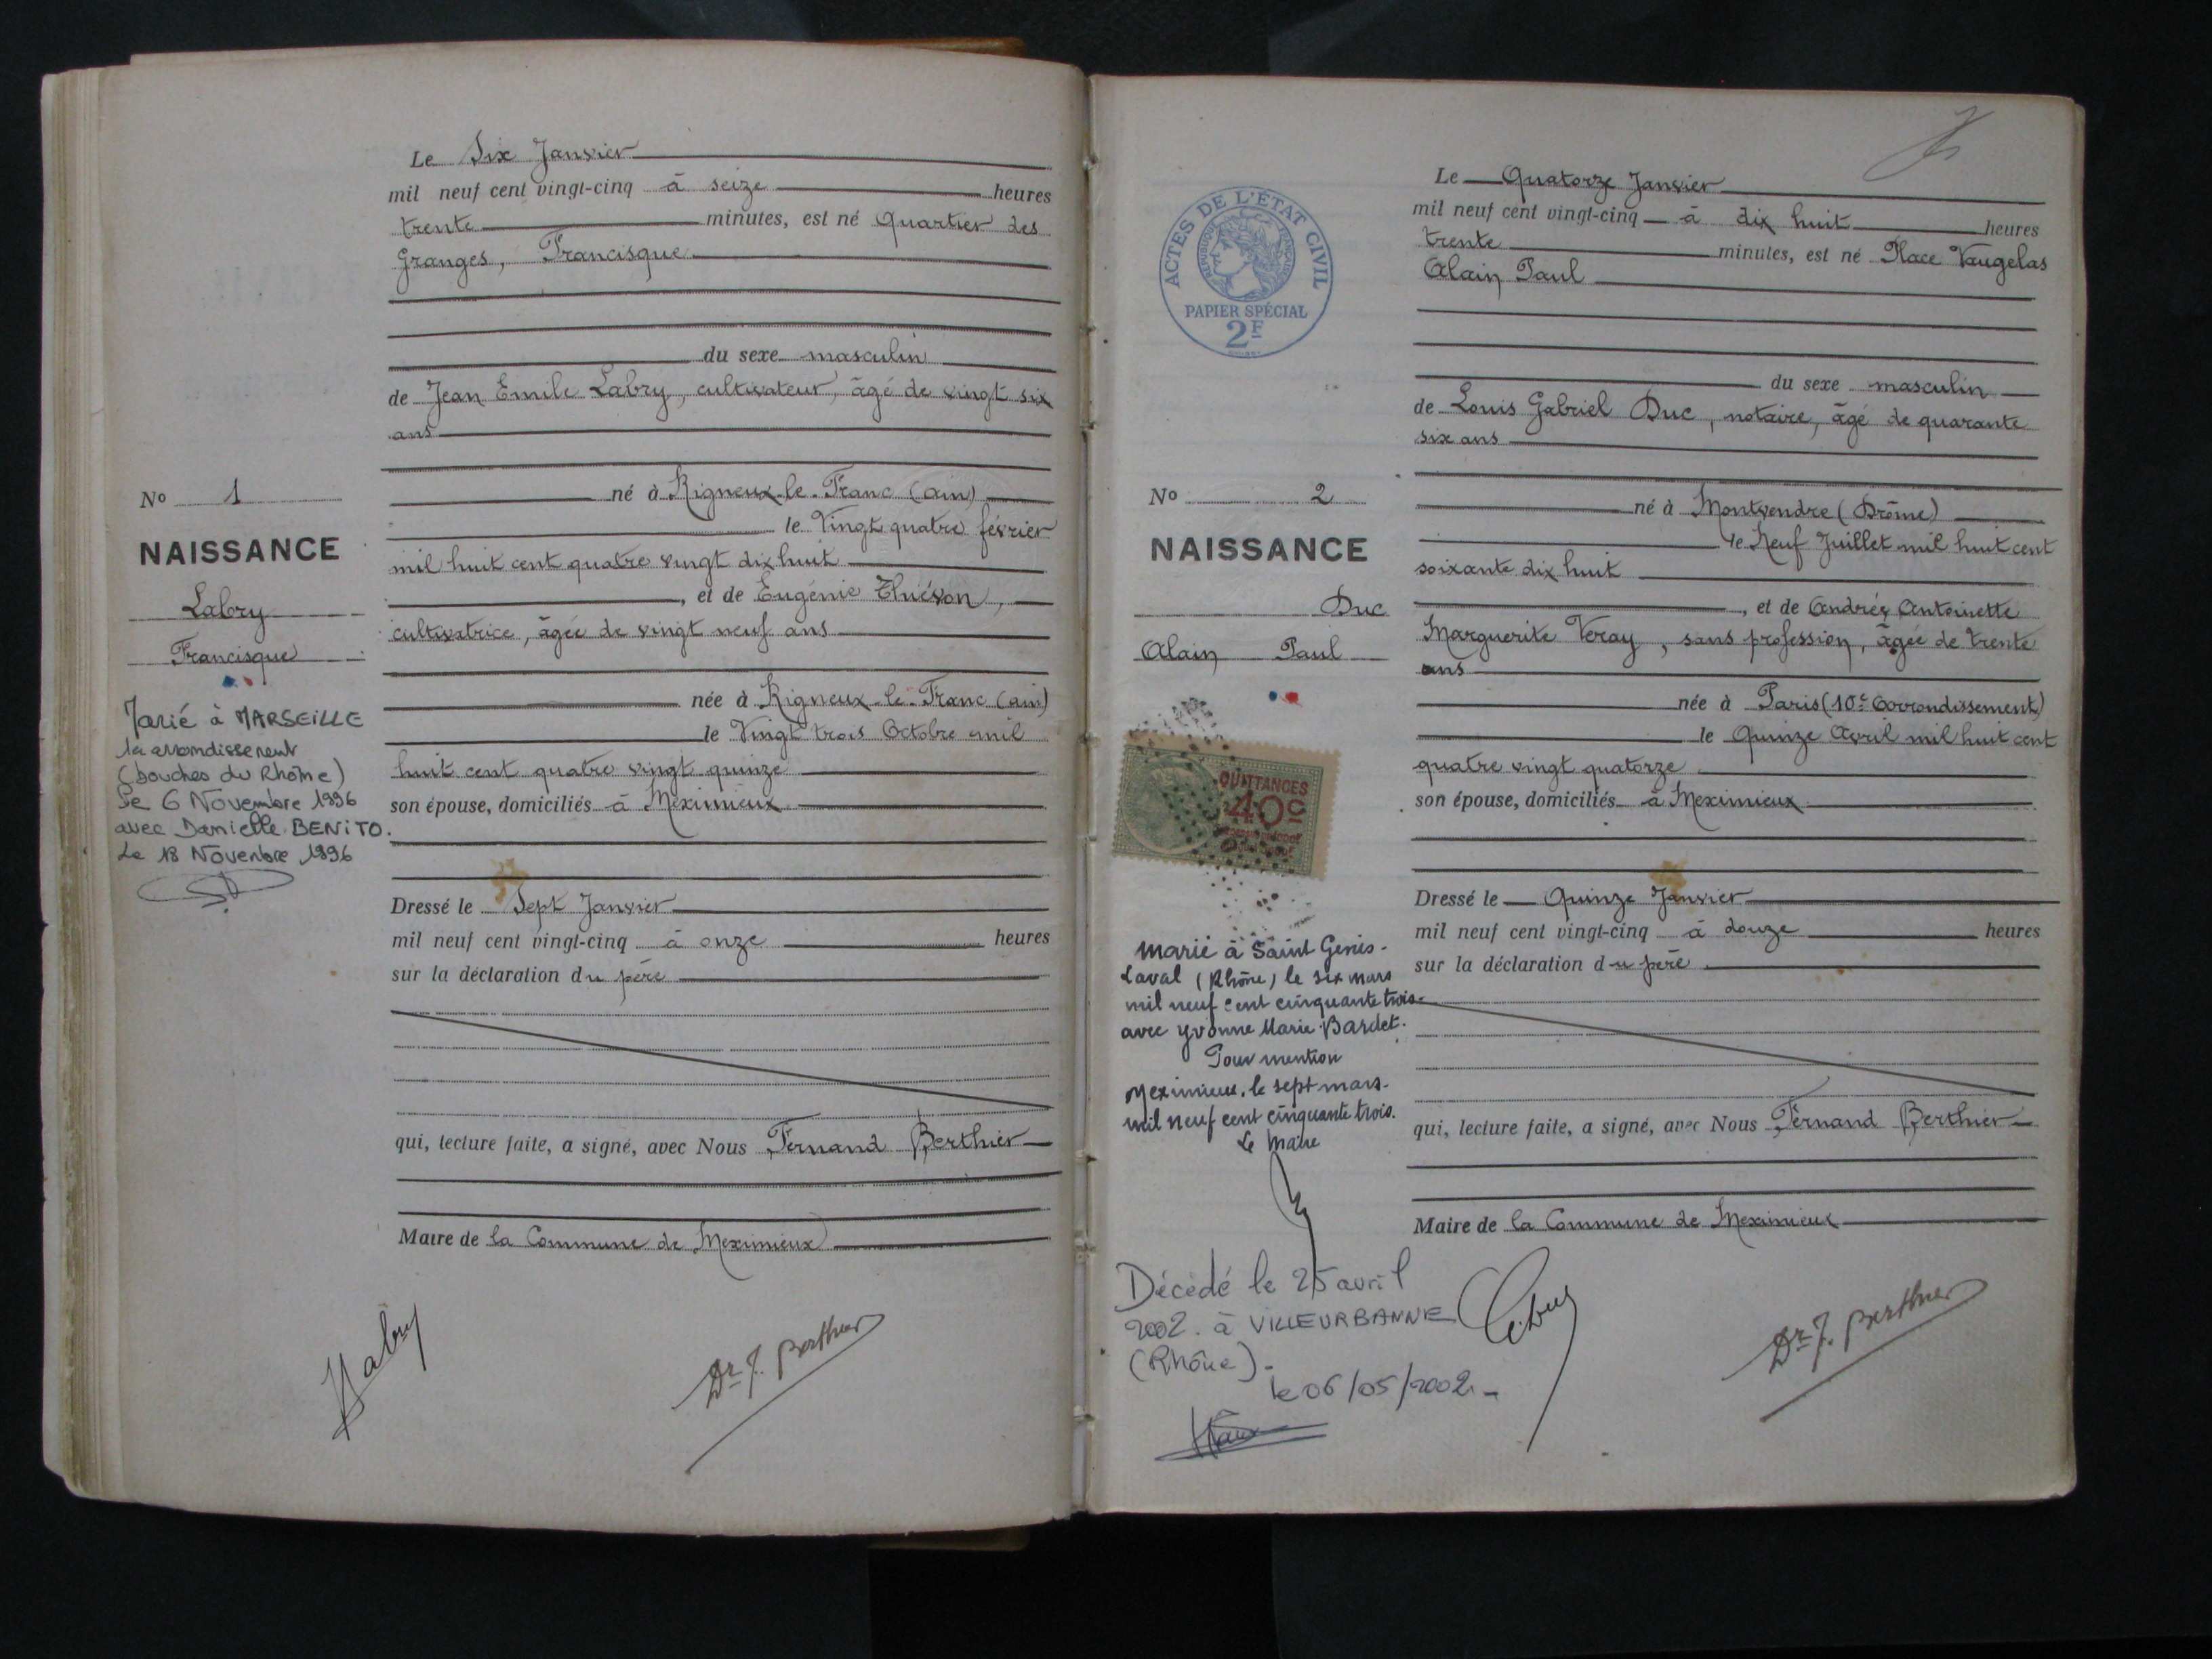 Le Six Janvier
mil neuf cent vingt-cinq à seize heures
trente minutes, est né quartier des
Granges, Francisque
du sexe masculin
de Jean Emile Labry, cultivateur, âgé de vingt six
ans
né à Rigneux-le-Franc (Ain)
le Vingt quatre février
mil huit cent quatre vingt dix huit
, et de Eugénie Thiévon,
cultivatrice, âgée de vingt neuf ans
née à Rigneux-le-Franc (Ain)
le Vingt trois Octobre mil
huit cent quatre vingt quinze
son épouse, domiciliés à Meximieux
Dressé le Sept Janvier
mil neuf cent vingt-cinq à onze heures
sur la déclaration du père
qui, lecture faite, a signé, avec Nous Fernand Berthier
Maire de la Commune de Meximieux
Labry
Dr F. Berthier
No 1
NAISSANCE
Labry
Francisque
Marié à MARSEILLE
1er arrondissement
(bouches du Rhône)
Le 6 Novembre 1996
avec Danielle BENITO.
Le 18 Novembre 1996
Le Quatorze Janvier
mil neuf cent vingt-cinq à dix huit heures
trente minutes, est né Place Vaugelas
Alain Paul
du sexe masculin
de Louis Gabriel Duc, notaire, âgé de quarante
six ans
né à Montvendre (Drôme)
le Neuf Juillet mil huit cent
soixante dix huit
, et de Andrée Antoinette
Marguerite Veray, sans profession, âgée de trente
ans
née à Paris (10e Arrondissement)
le Quinze Avril mil huit cent
quatre vingt quatorze
son épouse, domiciliés à Meximieux
Dressé le Quinze Janvier
mil neuf cent vingt-cinq à douze heures
sur la déclaration du père
qui, lecture faite, a signé, avec Nous Fernand Berthier
Maire de la Commune de Meximieux
Dr F. Berthier
ACTES DE L'ÉTAT CIVIL
RÉPUBLIQUE FRANÇAISE
PAPIER SPÉCIAL
2F
No 2
NAISSANCE
Duc
Alain Paul
QUITTANCES
40c
Marié à Saint Genis-
Laval (Rhône) le six mars
mil neuf cent cinquante trois
avec Yvonne Marie Bardet.
Pour mention
Meximieux, le sept mars
mil neuf cent cinquante trois.
Le Maire
Décédé le 25 avril
2002. à VILLEURBANNE
(Rhône).
le 06/05/2002.